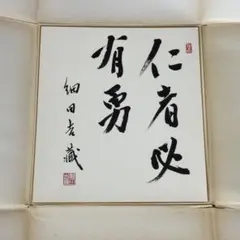 仁者必
有勇
細田吉藏